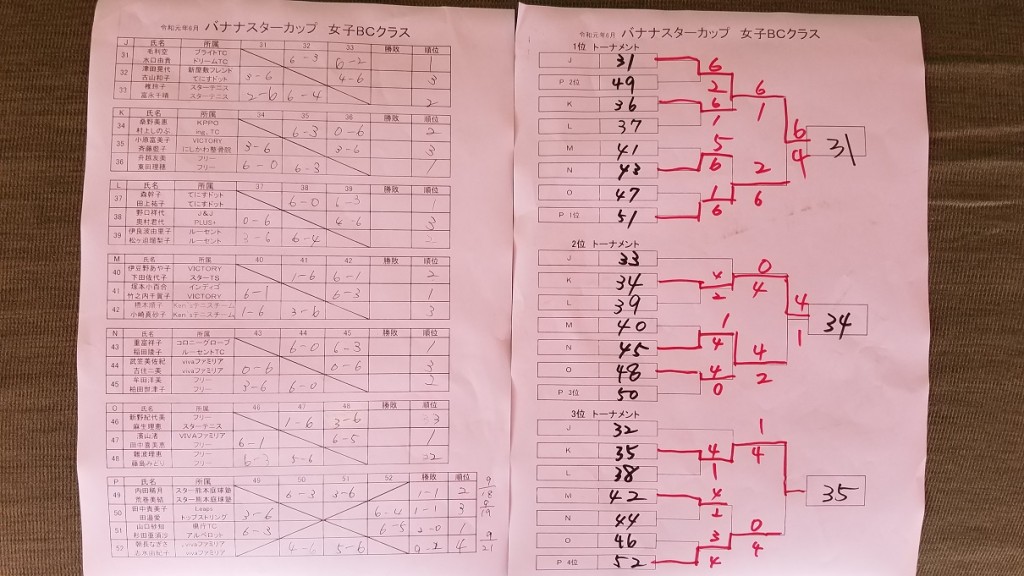 令和元年6月 バナナスターカップ 女子BCクラス
J 氏名 所属 31 32 33 勝敗 順位
31 毛利空 ブライトTC 6-3 6-2 1
水口由貴 ドリームTC
32 津田晃代 新屋敷フレンド 3-6 4-6 3
古山和子 てにすドット
33 スターテニス 2-6 6-4 2
富永千晴 スターテニス
K 氏名 所属 34 35 36 勝敗 順位
34 桑野美恵 KPPO 6-3 0-6 2
村上しのぶ ing.TC
35 小原富美子 VICTORY 3-6 3-6 3
斉藤豊子 にしかわ整骨院
36 舟越友美 フリー 6-0 6-3 1
重田理穂 フリー
L 氏名 所属 37 38 39 勝敗 順位
37 森幹子 てにすドット 6-0 6-3 1
田上祐子 てにすドット
38 野口祥代 J&J 0-6 4-6 3
奥村君代 PLUS+
39 伊良波由里子 ルーセント 3-6 6-4 2
松ヶ迫瑠梨子 ルーセント
M 氏名 所属 40 41 42 勝敗 順位
40 伊豆野あや子 VICTORY 1-6 6-1 2
下田佐代子 スターTS
41 塚本小百合 インディゴ 6-1 6-3 1
竹之内千賀子 VICTORY
42 橋本順子 Ken'sテニスチーム 1-6 3-6 3
小崎真砂子 Ken'sテニスチーム
N 氏名 所属 43 44 45 勝敗 順位
43 重富祥子 コロニーグローブ 6-0 6-3 1
稲田陵子 ルーセントTC
44 武笠美佐紀 vivaファミリア 0-6 0-6 3
吉住二美 vivaファミリア
45 牟田洋美 フリー 3-6 6-0 2
柏田世津子 フリー
O 氏名 所属 46 47 48 勝敗 順位
46 新野紀代美 フリー 1-6 3-6 3
麻生理恵 スターテニス
47 濱山渚 VIVAファミリア 6-1 6-5 1
田中喜美恵 フリー
48 難波理恵 フリー 6-3 5-6 2
藤島みどり フリー
P 氏名 所属 49 50 51 52 勝敗 順位
49 内田暢月 スター熊本庭球塾 6-3 3-6 1-1 2 9/18
荒巻美結 スター熊本庭球塾
50 田中貴美子 Leaps 3-6 6-4 1-1 3 8/19
田道愛 トップストリング
51 山口紗知 県庁TC 6-3 6-5 2-0 1
杉田亜須沙 アルペロット
52 朝長なぎさ vivaファミリア 4-6 5-6 0-2 4 9/21
vivaファミリア
令和元年6月 バナナスターカップ 女子BCクラス
1位 トーナメント
J 31 6
P 2位 49 2 6
K 36 6 1
L 37 1 6 31
M 41 5 4
N 43 6 2
O 47 1 6
P 1位 51 6
2位 トーナメント
J 33 0
K 34 4 4
L 39 2 4
M 40 1 34
N 45 4 1
O 48 4 4
P 3位 50 0 2
3位 トーナメント
J 32 1
K 35 4 4
L 38 1
M 42 4 35
N 44
O 46 3 0
P 4位 52 4 4